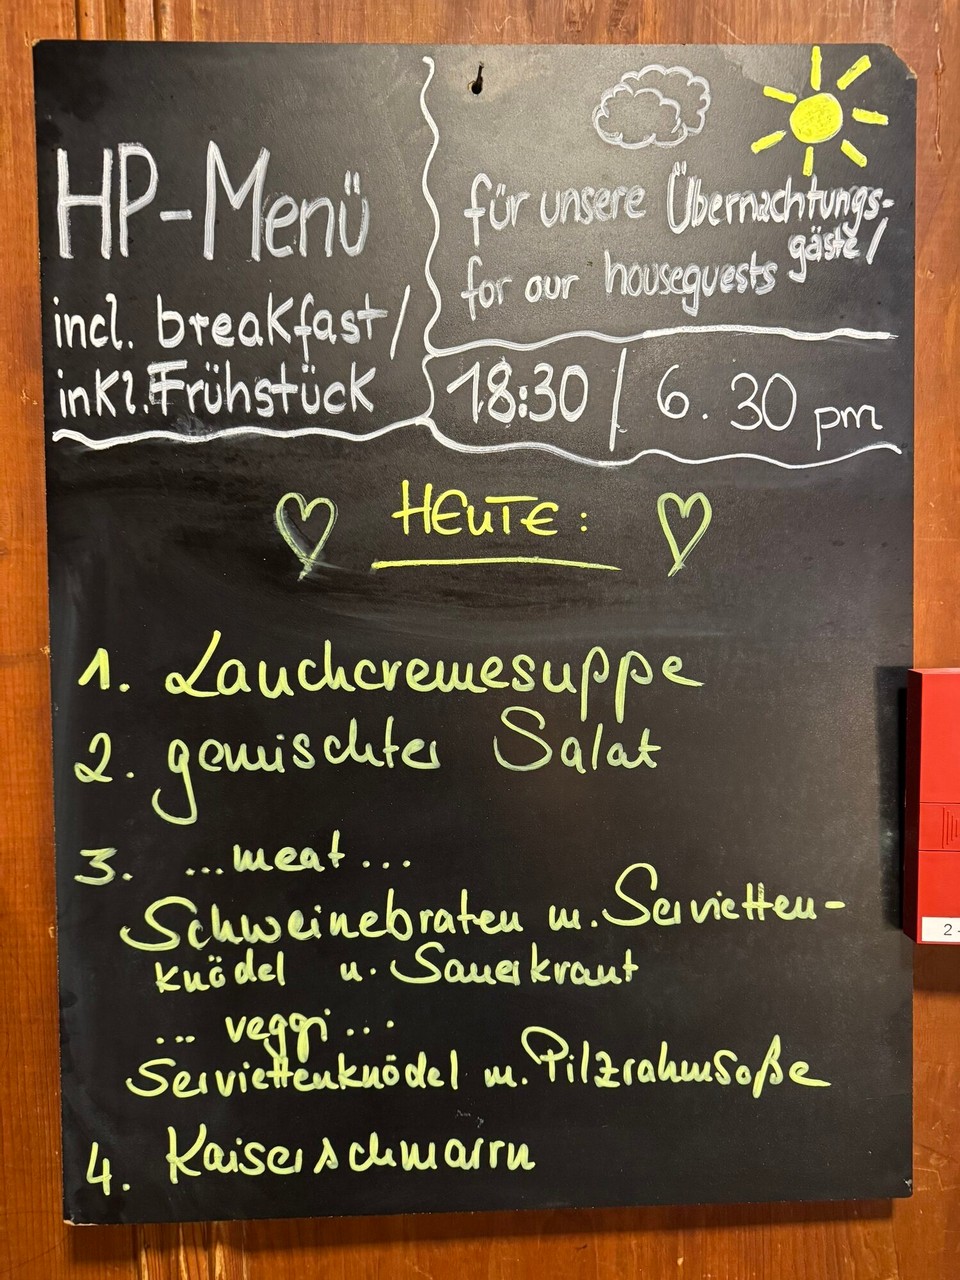 HP-Menü
incl. breakfast/
inkl. Frühstück
für unsere Übernachtungs-
gäste/
for our houseguests
18:30 / 6.30 pm
HEUTE:
1. Lauchcremesuppe
2. gemischter Salat
3. ...meat...
Schweinebraten m. Servietten-
knödel u. Sauerkraut
... veggi...
Serviettenknödel m. Pilzrahmsoße
4. Kaiserschmarrn
2-